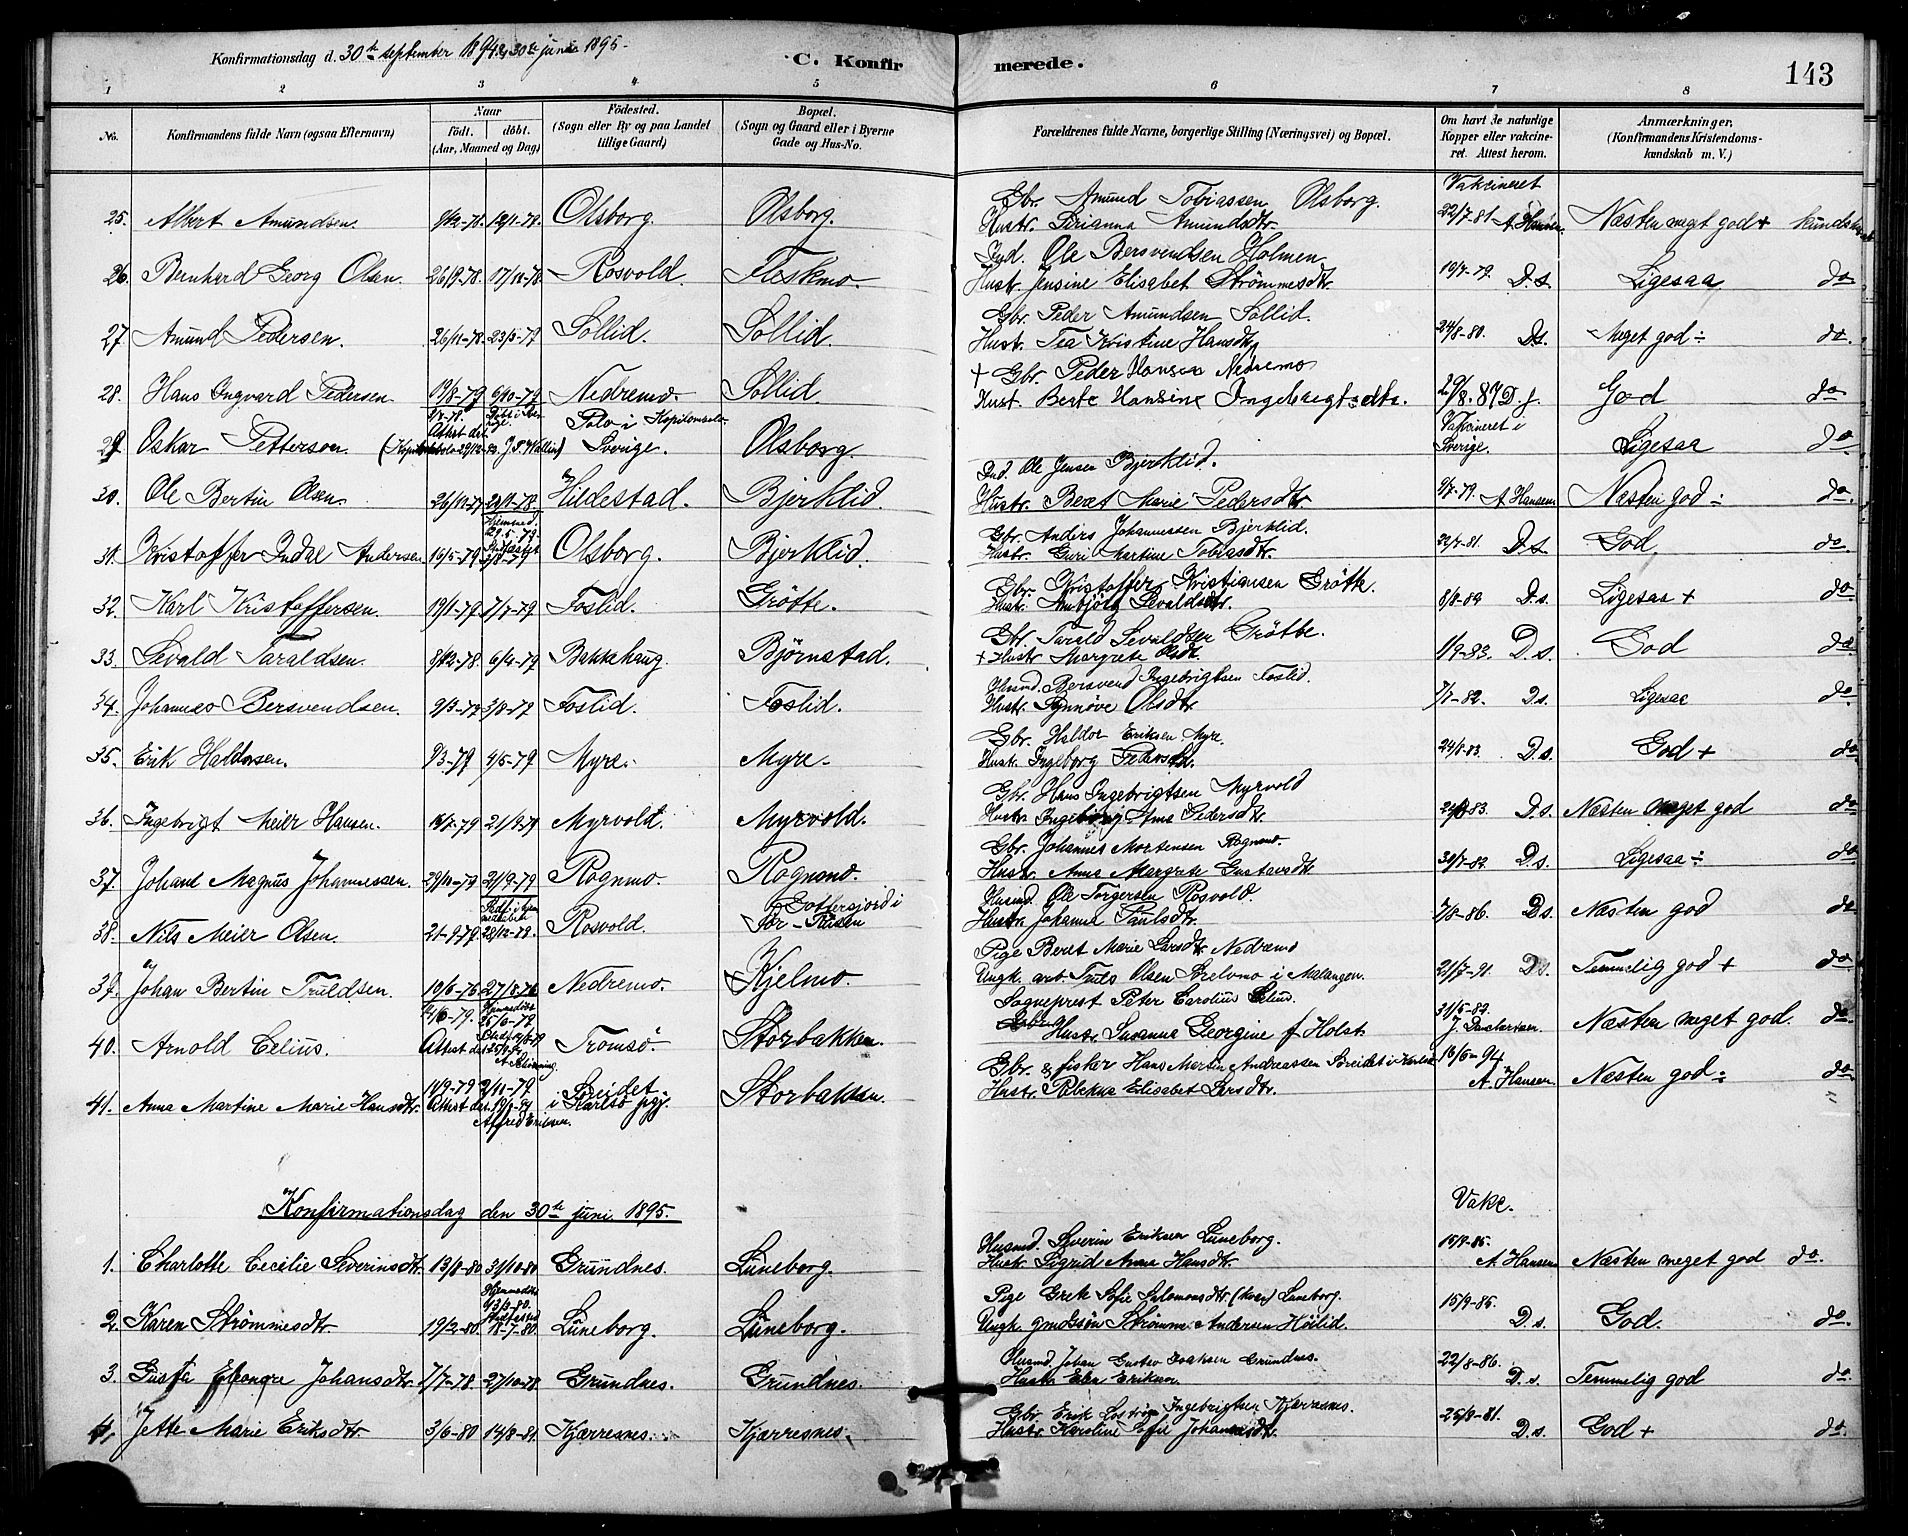 Konfirmationsdag d. 30te september 1894 & 30te juni 1895.
C. Konfirmerede.
143
1 2 3 4 5 6 7 8
No. Konfirmandens fulde Navn (ogsaa Efternavn) Naar födt. döbt. (Aar, Maaned og Dag) Födested. (Sogn eller By og paa Landet tillige Gaard) Bopæl. (Sogn og Gaard eller i Byerne Gade og Hus-No. Forældrenes fulde Navne, borgerlige Stilling (Næringsvei) og Bopæl. Om havt de naturlige Kopper eller vakcineret. Attest herom. Anmærkninger, (Konfirmandens Kristendomskundskab m. V.)
Gbr. Amund Tobiassen Olsborg. Vakcineret
25. Albert Amundsen. Olsborg. Olsborg. Hustr. Amundsdtr. 22/7-81 A. Hansen. Næsten meget god + kundskab
Ind. Ole Bersvendsen Holmen
26. Bernhard Georg Olsen. 26/9-78. 17/11-78 Rosvold. Fleskmo. Hustr. Jensine Elisabet Strømmesdtr. 19/7-79. D.s. Ligesaa do
Gbr. Peder Amundsen Sollid.
27. Amund Pedersen. 26/11-78. 23/3-79 Sollid. Sollid. Hustr. Tea Kristine Hansdtr. 24/8-80. D.s. Meget god ÷ do
+ Gbr. Peder Hansen Nedremo
28. Hans Ingvard Pedersen 19/8-79 6/10-79 Nedremo. Sollid. Hust. Berte Hansine Ingebrigtsdtr. 29/8.87 D.s. God do
Attest dat. Vakcineret i
29. Oskar Pettersen. Sverige. Olsborg. Sverige. Ligesaa do
Ind. Ole Jensen Bjerklid.
30. Ole Bertin Olsen. 26/11-77 Hildestad. Bjerklid. Hustr. Beret Marie Pedersdtr. 9/7-79. A. Hansen Næsten god ÷ do
Hjemmed.
Gbr. Anders Johannessen Bjerklid.
31. Kristoffer Indal Andersen 16/5-79 3/8-79 Olsborg. Bjerklid. Hustr. Guri Martine Tobiasdtr. 22/7-81. D.s. God do
Gbr. Kristoffer Kristiansen Grøtte.
32. Karl Kristoffersen. 19/1-79 7/7-79 Foslid. Grøtte. Hust. Sevaldsdtr. D.s. Ligesaa + do
Gbr. Tarald Sevaldsen Grøtte.
33. Sevald Taraldsen. 8/12-78. 6/4-79 Bakkehaug. Bjørnstad. + Hustr. Margrete Olsdtr. 1/9-83. D.s. God do
Husmd. Bersvend Ingebrigtsen Foslid.
34. Johannes Bersvendsen. Foslid. Foslid. Hustr. Synnøve Olsdtr. 7/7-82. D.s. Ligesaa do
Gbr. Haldor Eriksen Myre.
35. Erik Haldorsen. 4/5-79 Myre. Myre. Hustr. Ingeborg Pedersdtr. 24/8-83. D.s. God + do
Gbr. Hans Ingebrigtsen Myrvold
36. Ingebrigt Meier Hansen. 21/9-79 Myrvold. Myrvold. Hustr. Ingeborg Ama Pedersdtr. D.s. Næsten meget god do
Gbr. Johannes Mortensen Rognmo.
37. Johan Magnus Johannessen. 21/9-79 Rognmo. Rognmo. Hustr. Anna Margrete Gustavsdtr. 30/7-82. D.s. Ligesaa ÷ do
Husmd. Ole Torgersen Rosvold.
38. Nils Meier Olsen. 21-9-79. 28/12-79. Rosvold. Hustr. Johanna Paulsdtr. 7/8-86. D.s. Næsten god do
Pige Beret Marie Larsdtr. Nedremo
39. Johan Bertin Truldsen. 10/6-76 27/8-76 Nedremo. Kjelmo. Ungk. Truls Olsen i Malangen. 21/7-91. D.s. Temmelig god + do
Sogneprest Peter Carolius Celius. 31/5-87.
40. Arnold Celius. Attest dat. Tromsø. Storbakken. Hustr. Susanna Georgine f. Holst. Næsten meget god. do
Gbr. & fisker Hans Martin Andreassen Breidet i 16/6-94
41. Anna Martine Marie Hansdtr. 11/9-79 Attest dat. Breidet i Karlsø pgj. Storbakken. Hustr. Rebekka Elisabet Larsdtr. A. Hansen Næsten god ÷ do
Alfred Eriksen.
Konfirmationsdag den 30te juni 1895.
Vakc.
Husmd. Severin Eriksen Luneborg.
1. Charlotte Cecilie Severinsdtr. 13/8-80 31/10-80 Grundnes. Luneborg. Hustr. Sigrid Anna Hansdtr. 15/9-85. A. Hansen Næsten meget god do.
Hjemmedøbt
Pige Grete Sofie Salomonsdtr. (kvæn) Luneborg.
2. Karen Strømmesdtr. 19/2-80 18-7-80 Luneborg. Luneborg. Ungk. Strømme Andersen Höilid. 15/9-85. D.s. God. do.
Husmd. Johan Gustav Isaksen Grundnes.
3. Gusta Eleonore Johansdtr. 1/7-78. 27/10-78. Grundnes. Grundnes. Hustr. Elen Eriksen. 22/8-86. D.s. Temmelig god do.
Gbr. Erik Ingebrigtsen Kjærresnes.
4. Jette Marie Eriksdtr. 3/6-80 14/8-81. Kjærresnes. Kjærresnes. Hustr. Karoline Sofie Johannesdtr. 25/8-81. D.s. God + do.